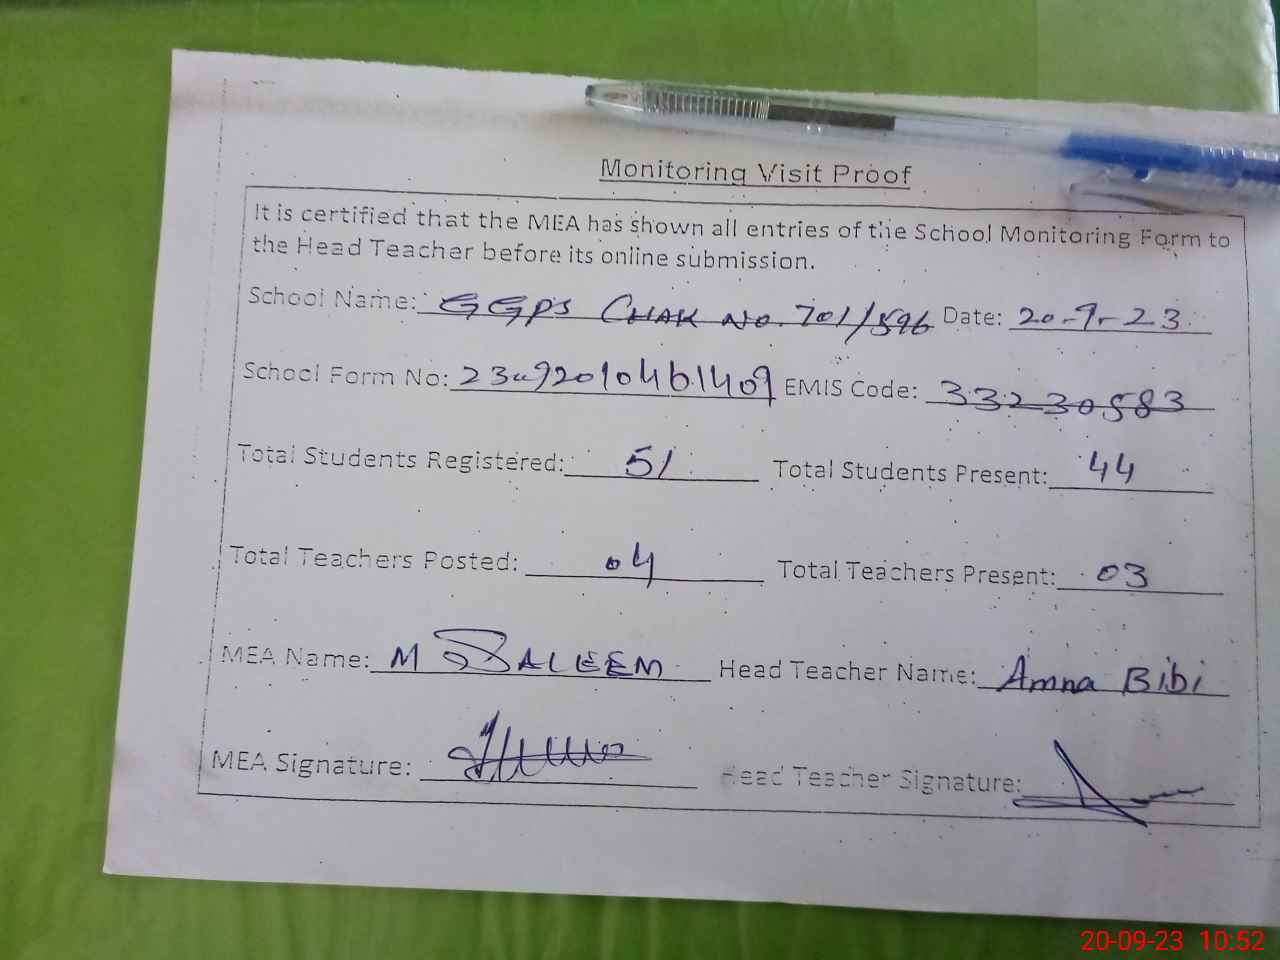 Monitoring Visit Proof
It is certified that the MEA has shown all entries of the School Monitoring Form to
the Head Teacher before its online submission.
School Name: GGPS CHAK NO. 701/596 Date: 20-9-23
School Form No: EMIS Code: 33230583
Total Students Registered: 51 Total Students Present: 44
Total Teachers Posted: 04 Total Teachers Present: 03
MEA Name: M SALEEM Head Teacher Name: Amna Bibi
MEA Signature: Head Teacher Signature:
20-09-23 10:52